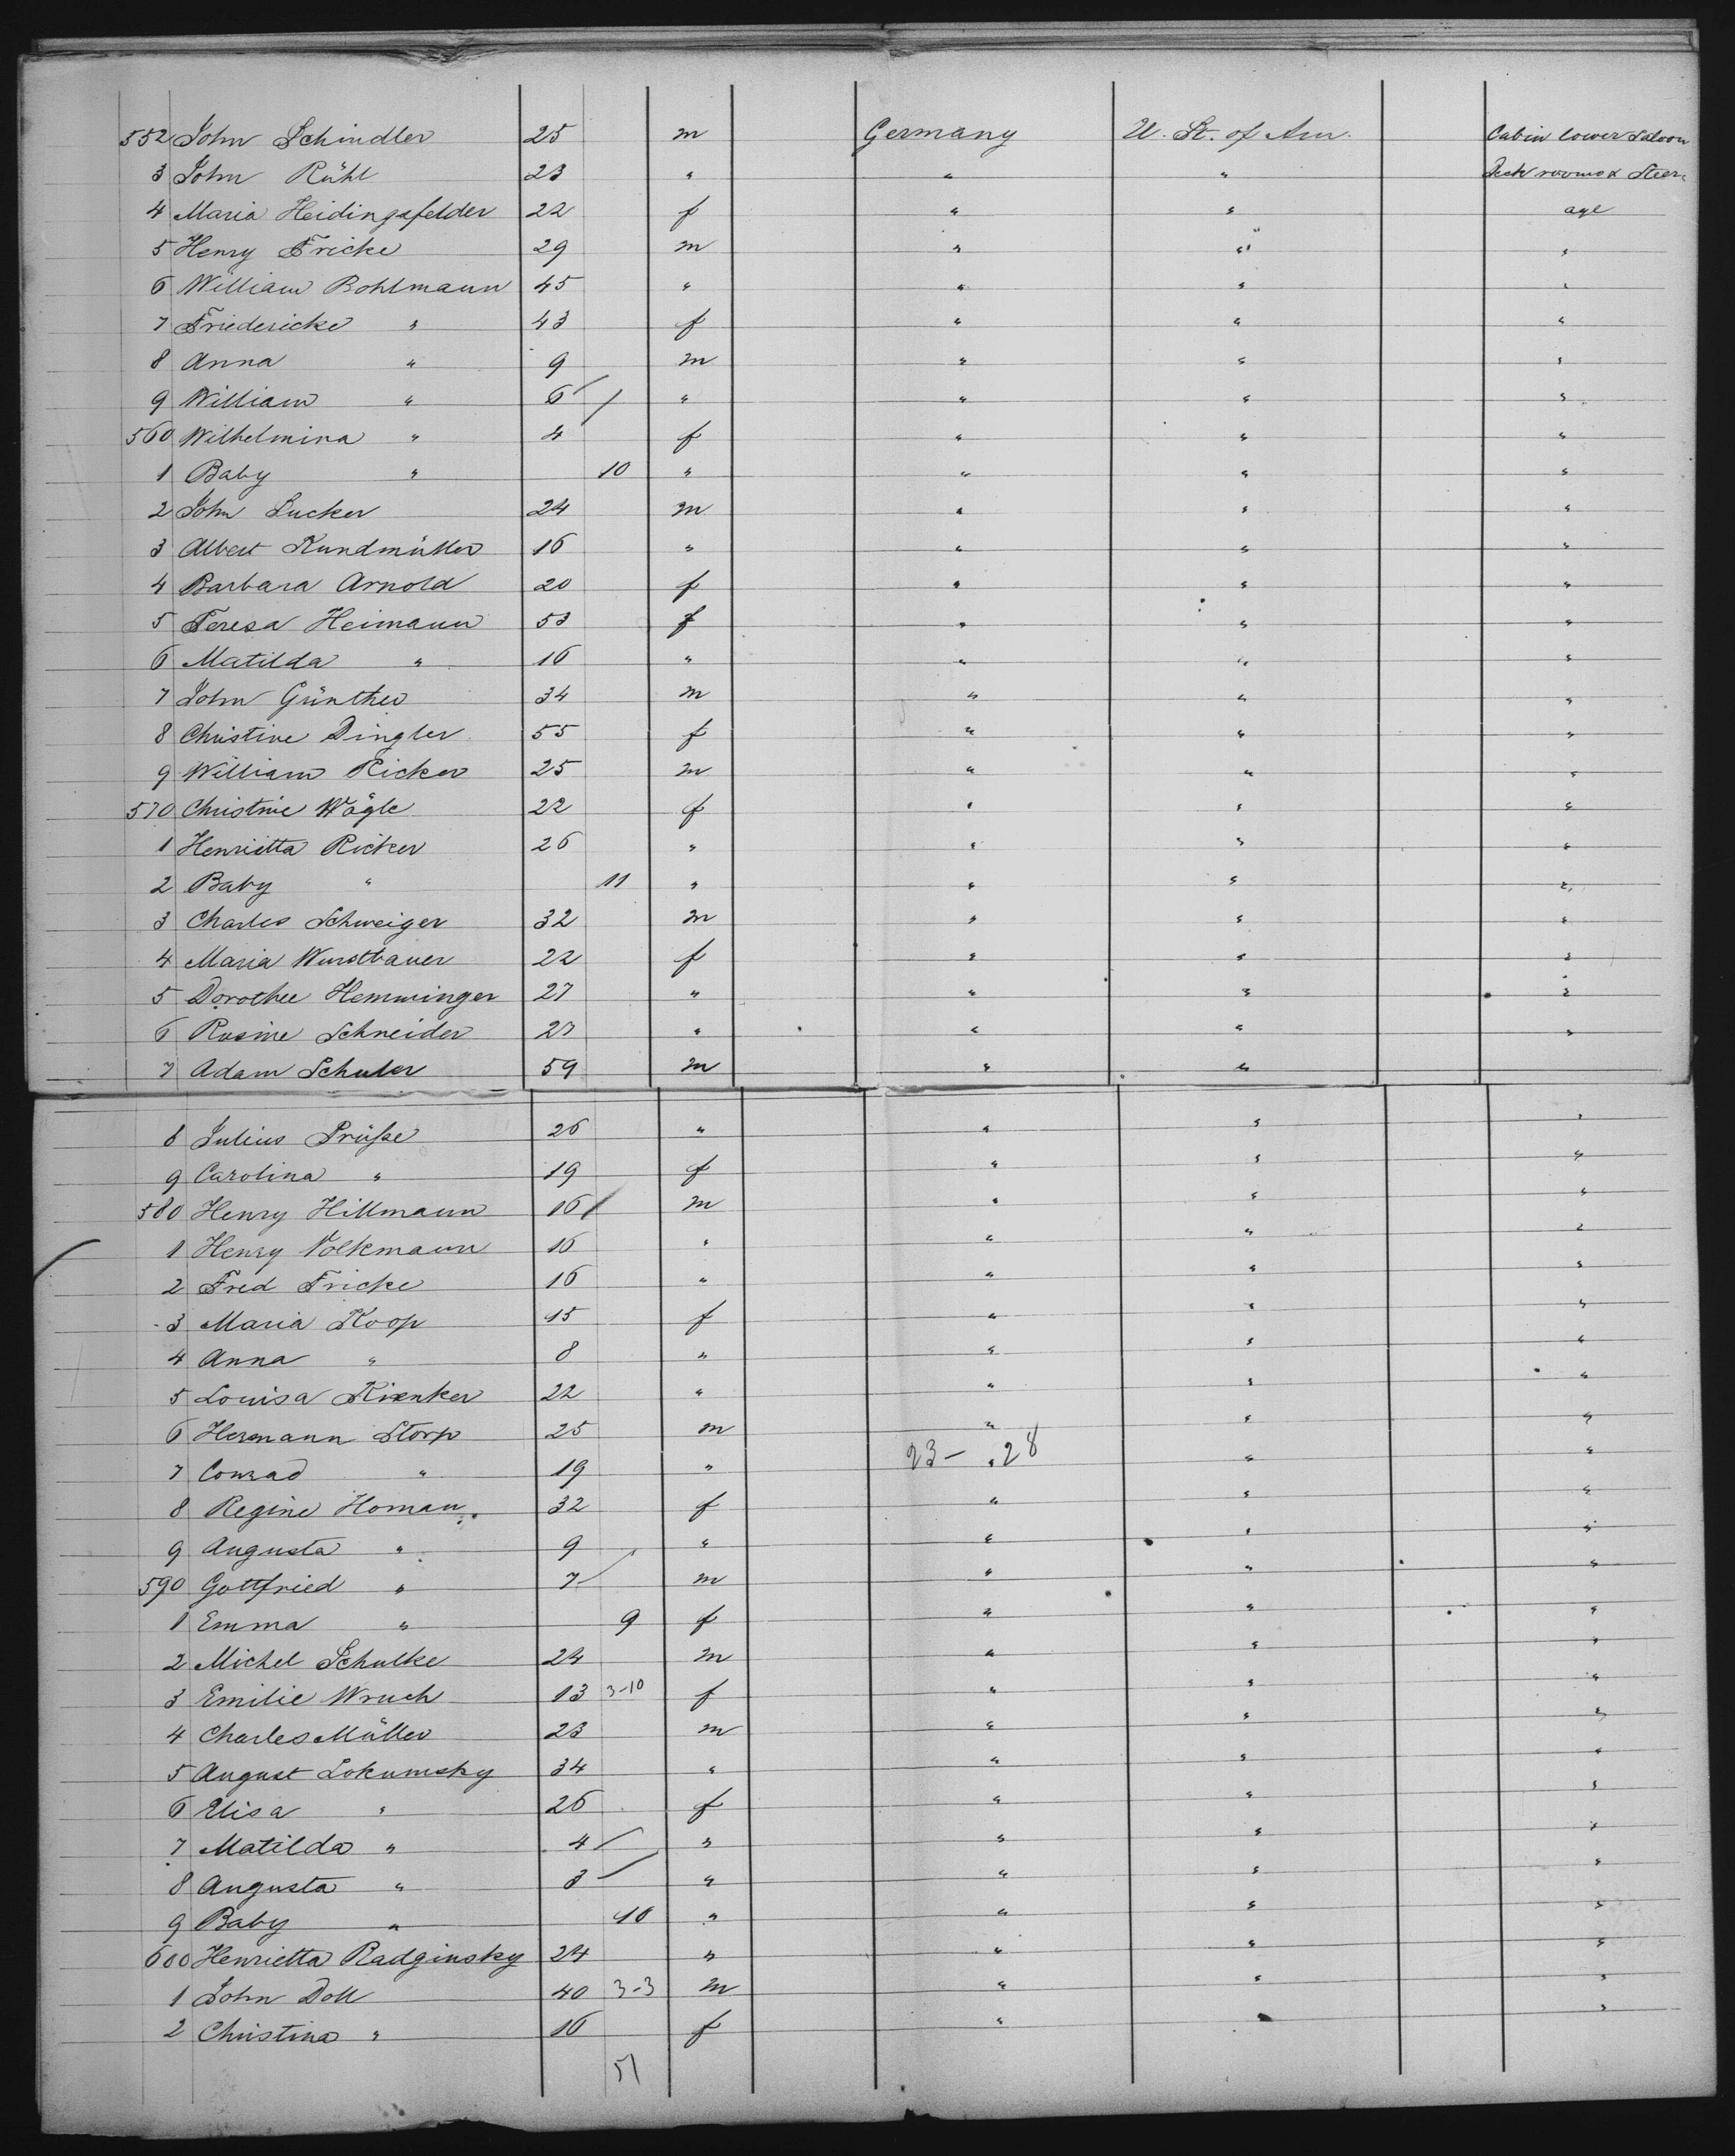 552 John Schindler 25 m Germany U. St. of Am. Cabin lower Saloon
3 John Rühl 23 " " " Deck rooms & Steer-
4 Maria Heidingsfelder 22 f " " age
5 Henry Fricke 29 m " " "
6 William Bohlmann 45 " " " "
7 Friedericke " 43 f " " "
8 Anna " 9 m " " "
9 William " 6 / " " " "
560 Wilhelmina " 4 f " " "
1 Baby " 10 " " " "
2 John Lucker 24 m " " "
3 Albert Kundmüller 16 " " " "
4 Barbara Arnold 20 f " " "
5 Teresa Heimann 53 f " " "
6 Matilda " 16 " " " "
7 John Günther 34 m " " "
8 Christine Dingler 55 f " " "
9 William Ricker 25 m " " "
570 Christine Wägle 22 f " " "
1 Henrietta Ricker 26 " " " "
2 Baby " 11 " " " "
3 Charles Schweiger 32 m " " "
4 Maria Wurstbauer 22 f " " "
5 Dorothee Hemminger 27 " " " "
6 Rosine Schneider 27 " " " "
7 Adam Schuler 59 m " "
8 Julius Prüße 26 " " " "
9 Carolina " 19 f " " "
580 Henry Hillmann 16 / m " " "
1 Henry Volkmann 16 " " " "
2 Fred Fricke 16 " " " "
3 Maria Koop 15 f " " "
4 Anna " 8 " " " "
5 Louisa Kienker 22 " " " "
6 Hermann Storp 25 m " " "
7 Conrad " 19 " 23- " 28 " "
8 Regine Homan 32 f " " "
9 Augusta " 9 " " " "
590 Gottfried " 7 m " " "
1 Emma " 9 f " " "
2 Michel Schulke 24 m " " "
3 Emilie Wruch 13 3-10 f " " "
4 Charles Müller 23 m " " "
5 August Lokumsky 34 " " " "
6 Elisa " 26 f " " "
7 Matilda " 4 / " " " "
8 Augusta " 3 " " " "
9 Baby " 10 " " " "
600 Henrietta Radginsky 24 " " " "
1 John Doll 40 3-3 m " " "
2 Christina " 16 f " " "
51